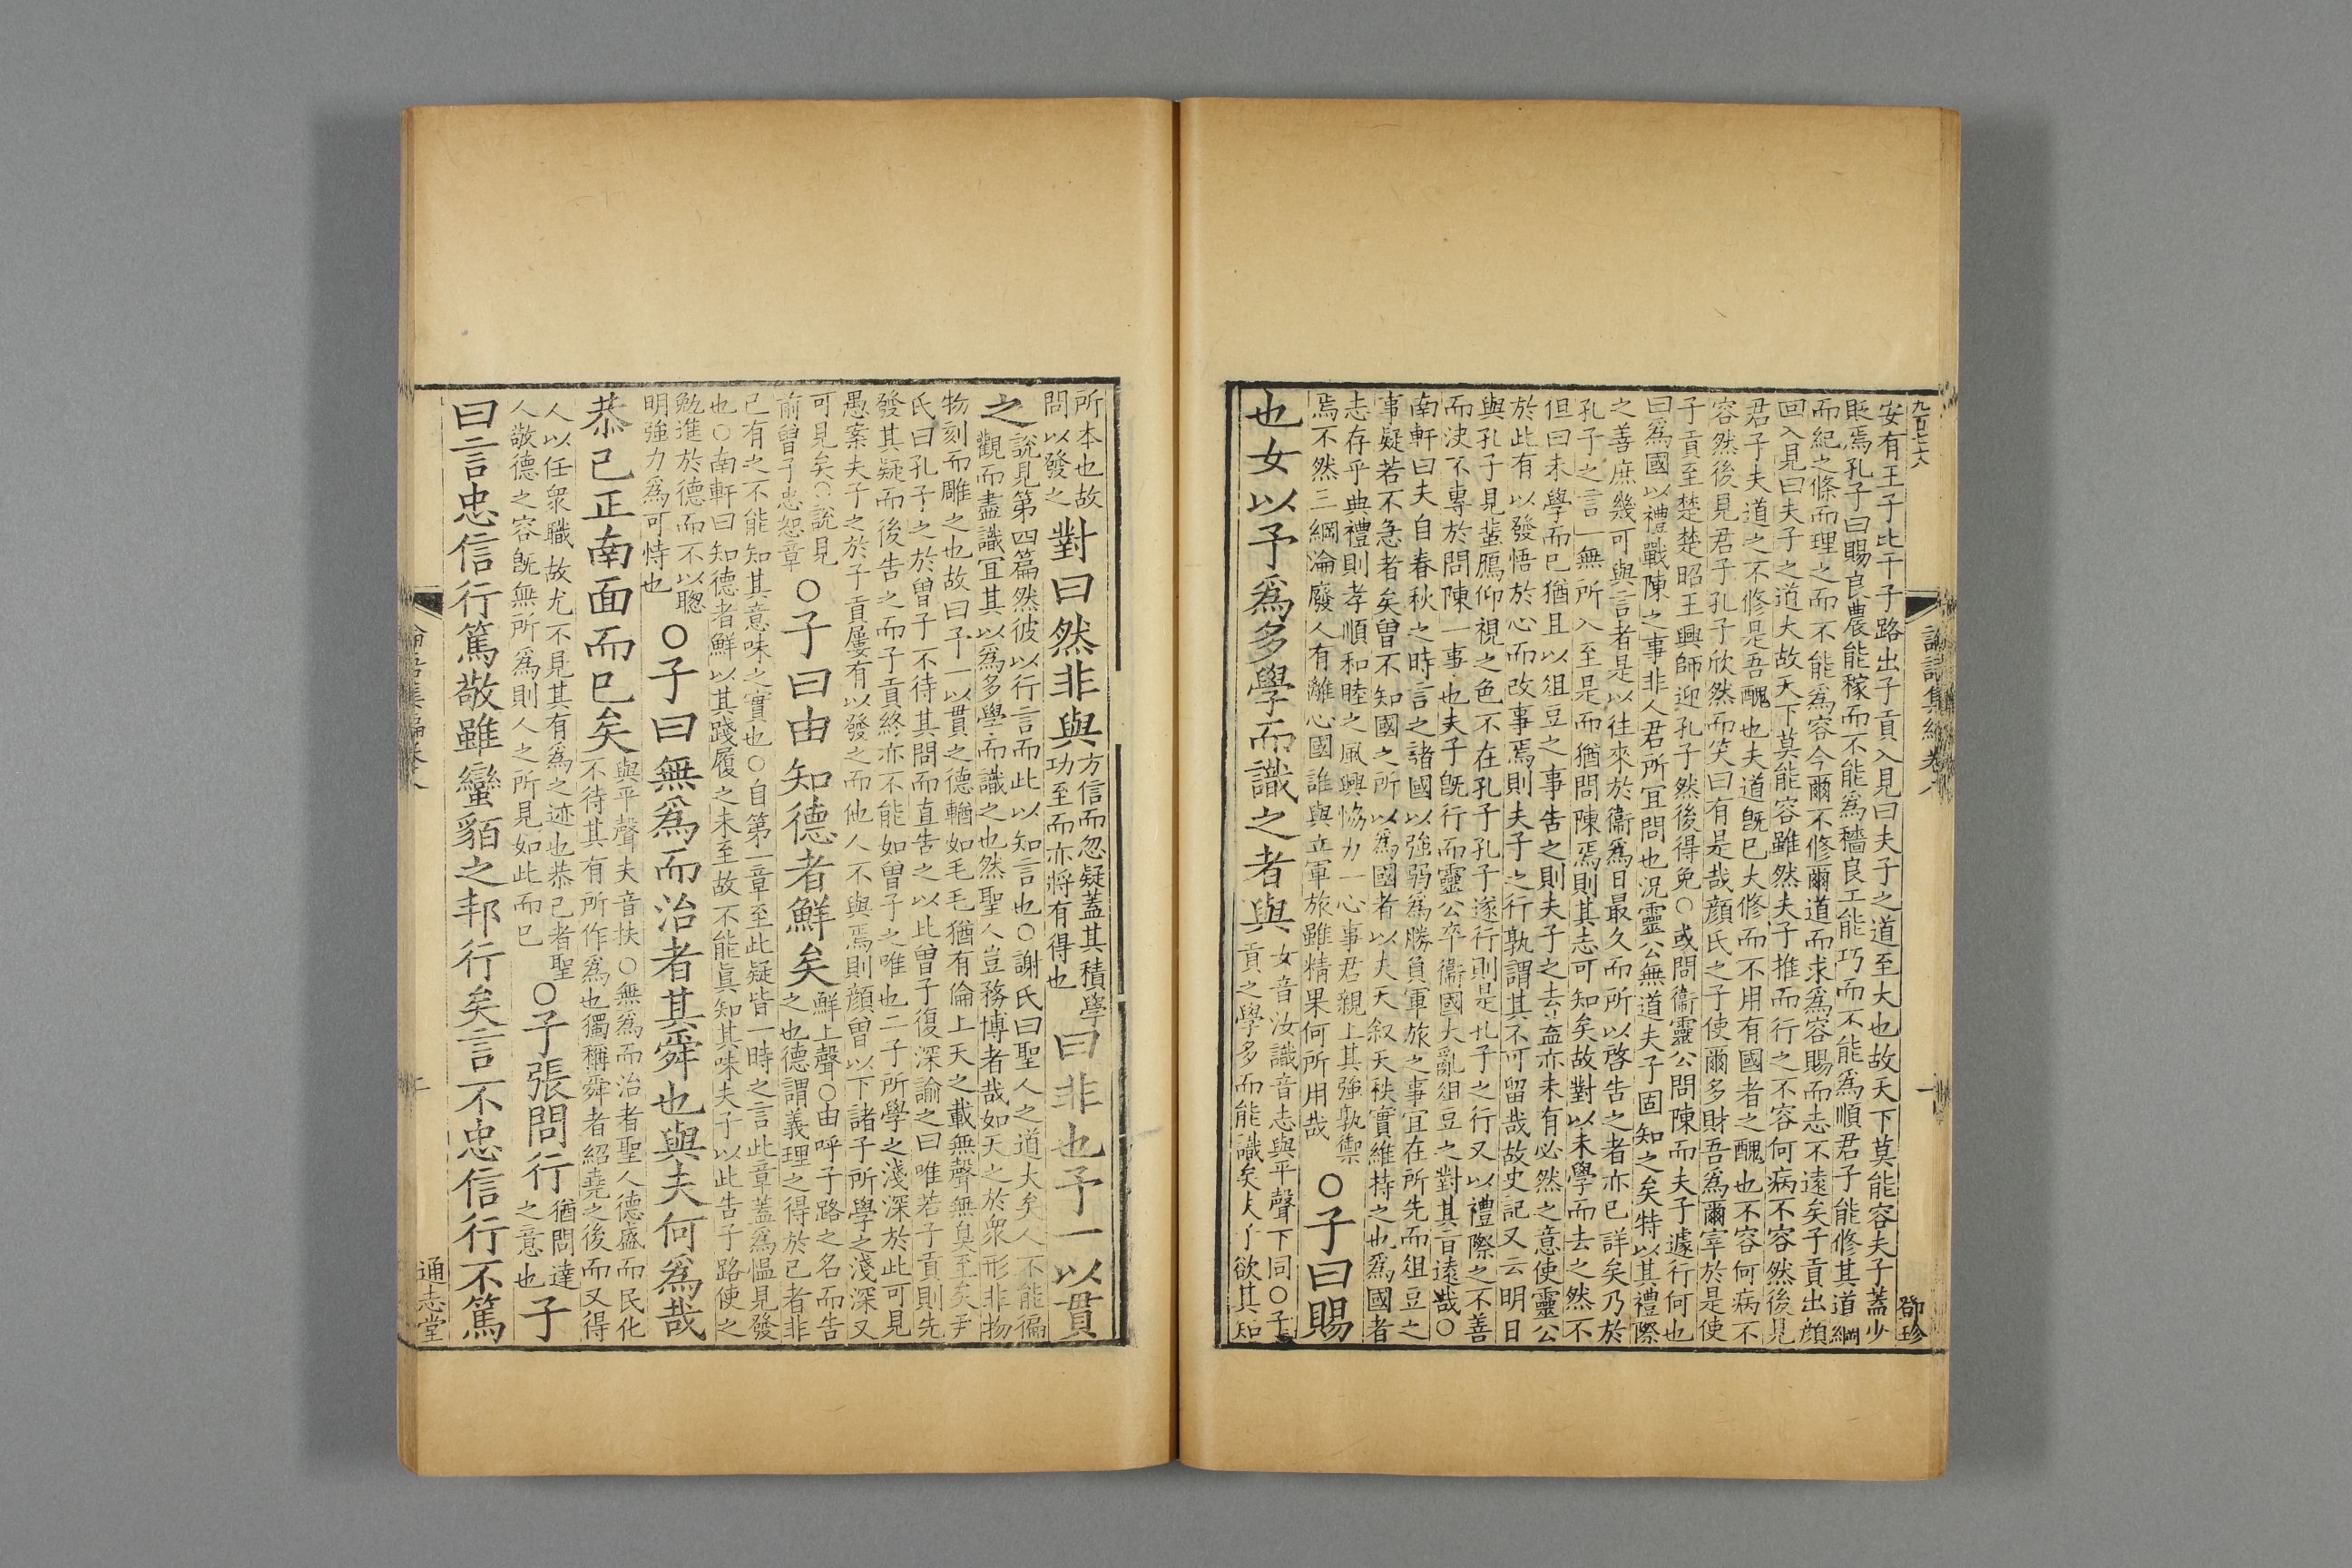 安有王子比干子路出子貢入見曰夫子之道至大也故天下莫能容夫子蓋少
貶焉孔子曰賜良農能稼而不能爲穡良工能巧而不能爲順君子能修其道綱
而紀之條而理之而不能爲容今爾不修爾道而求爲容賜而志不遠矣子貢出顔
回入見曰夫子之道大故天下莫能容雖然夫子推而行之不容何病不容然後見
君子夫道之不修是吾醜也夫道旣已大修而不用有國者之醜也不容何病不
容然後見君子孔子欣然而笑曰有是哉顔氏之子使爾多財吾爲爾宰於是使
子貢至楚楚昭王興師迎孔子然後得免○或問衞靈公問陳而夫子遽行何也
曰爲國以禮戰陳之事非人君所宜問也况靈公無道夫子固知之矣特以其禮際
之善庶幾可與言者是以往來於衞爲日最久而所以啓告之者亦已詳矣乃於
孔子之言一無所入至是而猶問陳焉則其志可知矣故對以未學而去之然不
但曰未學而已猶且以俎豆之事告之則夫子之去蓋亦未有必然之意使靈公
於此有以發悟於心而改事焉則夫子之行孰謂其不可留哉故史記又云明日
與孔子見蜚鴈仰視之色不在孔子孔子遂行則是孔子之行又以禮際之不善
而決不專於問陳一事也夫子旣行而靈公卒衞國大亂俎豆之對其旨遠哉○
南軒曰夫自春秋之時言之諸國以強弱爲勝負軍旅之事宜在所先而俎豆之
事疑若不急者矣曾不知國之所以爲國者以夫天叙天秩實維持之也爲國者
志存乎典禮則孝順和睦之風興恊力一心事君親上其強孰禦
焉不然三綱淪廢人有離心國誰與立軍旅雖精果何所用哉
○子曰賜
也女以予爲多學而識之者與
女音汝識音志與平聲下同○子
貢之學多而能識矣夫子欲其知
所本也故
問以發之
對曰然非與
方信而忽疑蓋其積學
功至而亦將有得也
曰非也予一以貫
之
說見第四篇然彼以行言而此以知言也○謝氏曰聖人之道大矣人不能徧
觀而盡識宜其以爲多學而識之也然聖人豈務博者哉如天之於衆形非物
物刻而雕之也故曰予一以貫之德輶如毛毛猶有倫上天之載無聲無臭至矣尹
氏曰孔子之於曾子不待其問而直告之以此曾子復深諭之曰唯若子貢則先
發其疑而後告之而子貢終亦不能如曾子之唯也二子所學之淺深於此可見
愚案夫子之於子貢屢有以發之而他人不與焉則顔曾以下諸子所學之淺深又
可見矣○說見
前曾子忠恕章
○子曰由知德者鮮矣
鮮上聲○由呼子路之名而告
之也德謂義理之得於己者非
己有之不能知其意味之實也○自第一章至此疑皆一時之言此章蓋爲慍見發
也○南軒曰知德者鮮以其踐履之未至故不能眞知其味夫子以此告子路使之
勉進於德而不以聰
明強力爲可恃也
○子曰無爲而治者其舜也與夫何爲哉
恭己正南面而已矣
與平聲夫音扶○無爲而治者聖人德盛而民化
不待其有所作爲也獨稱舜者紹堯之後而又得
人以任衆職故尤不見其有爲之迹也恭己者聖
人敬德之容旣無所爲則人之所見如此而已
○子張問行
猶問達
之意也
子
曰言忠信行篤敬雖蠻貊之邦行矣言不忠信行不篤
通志堂